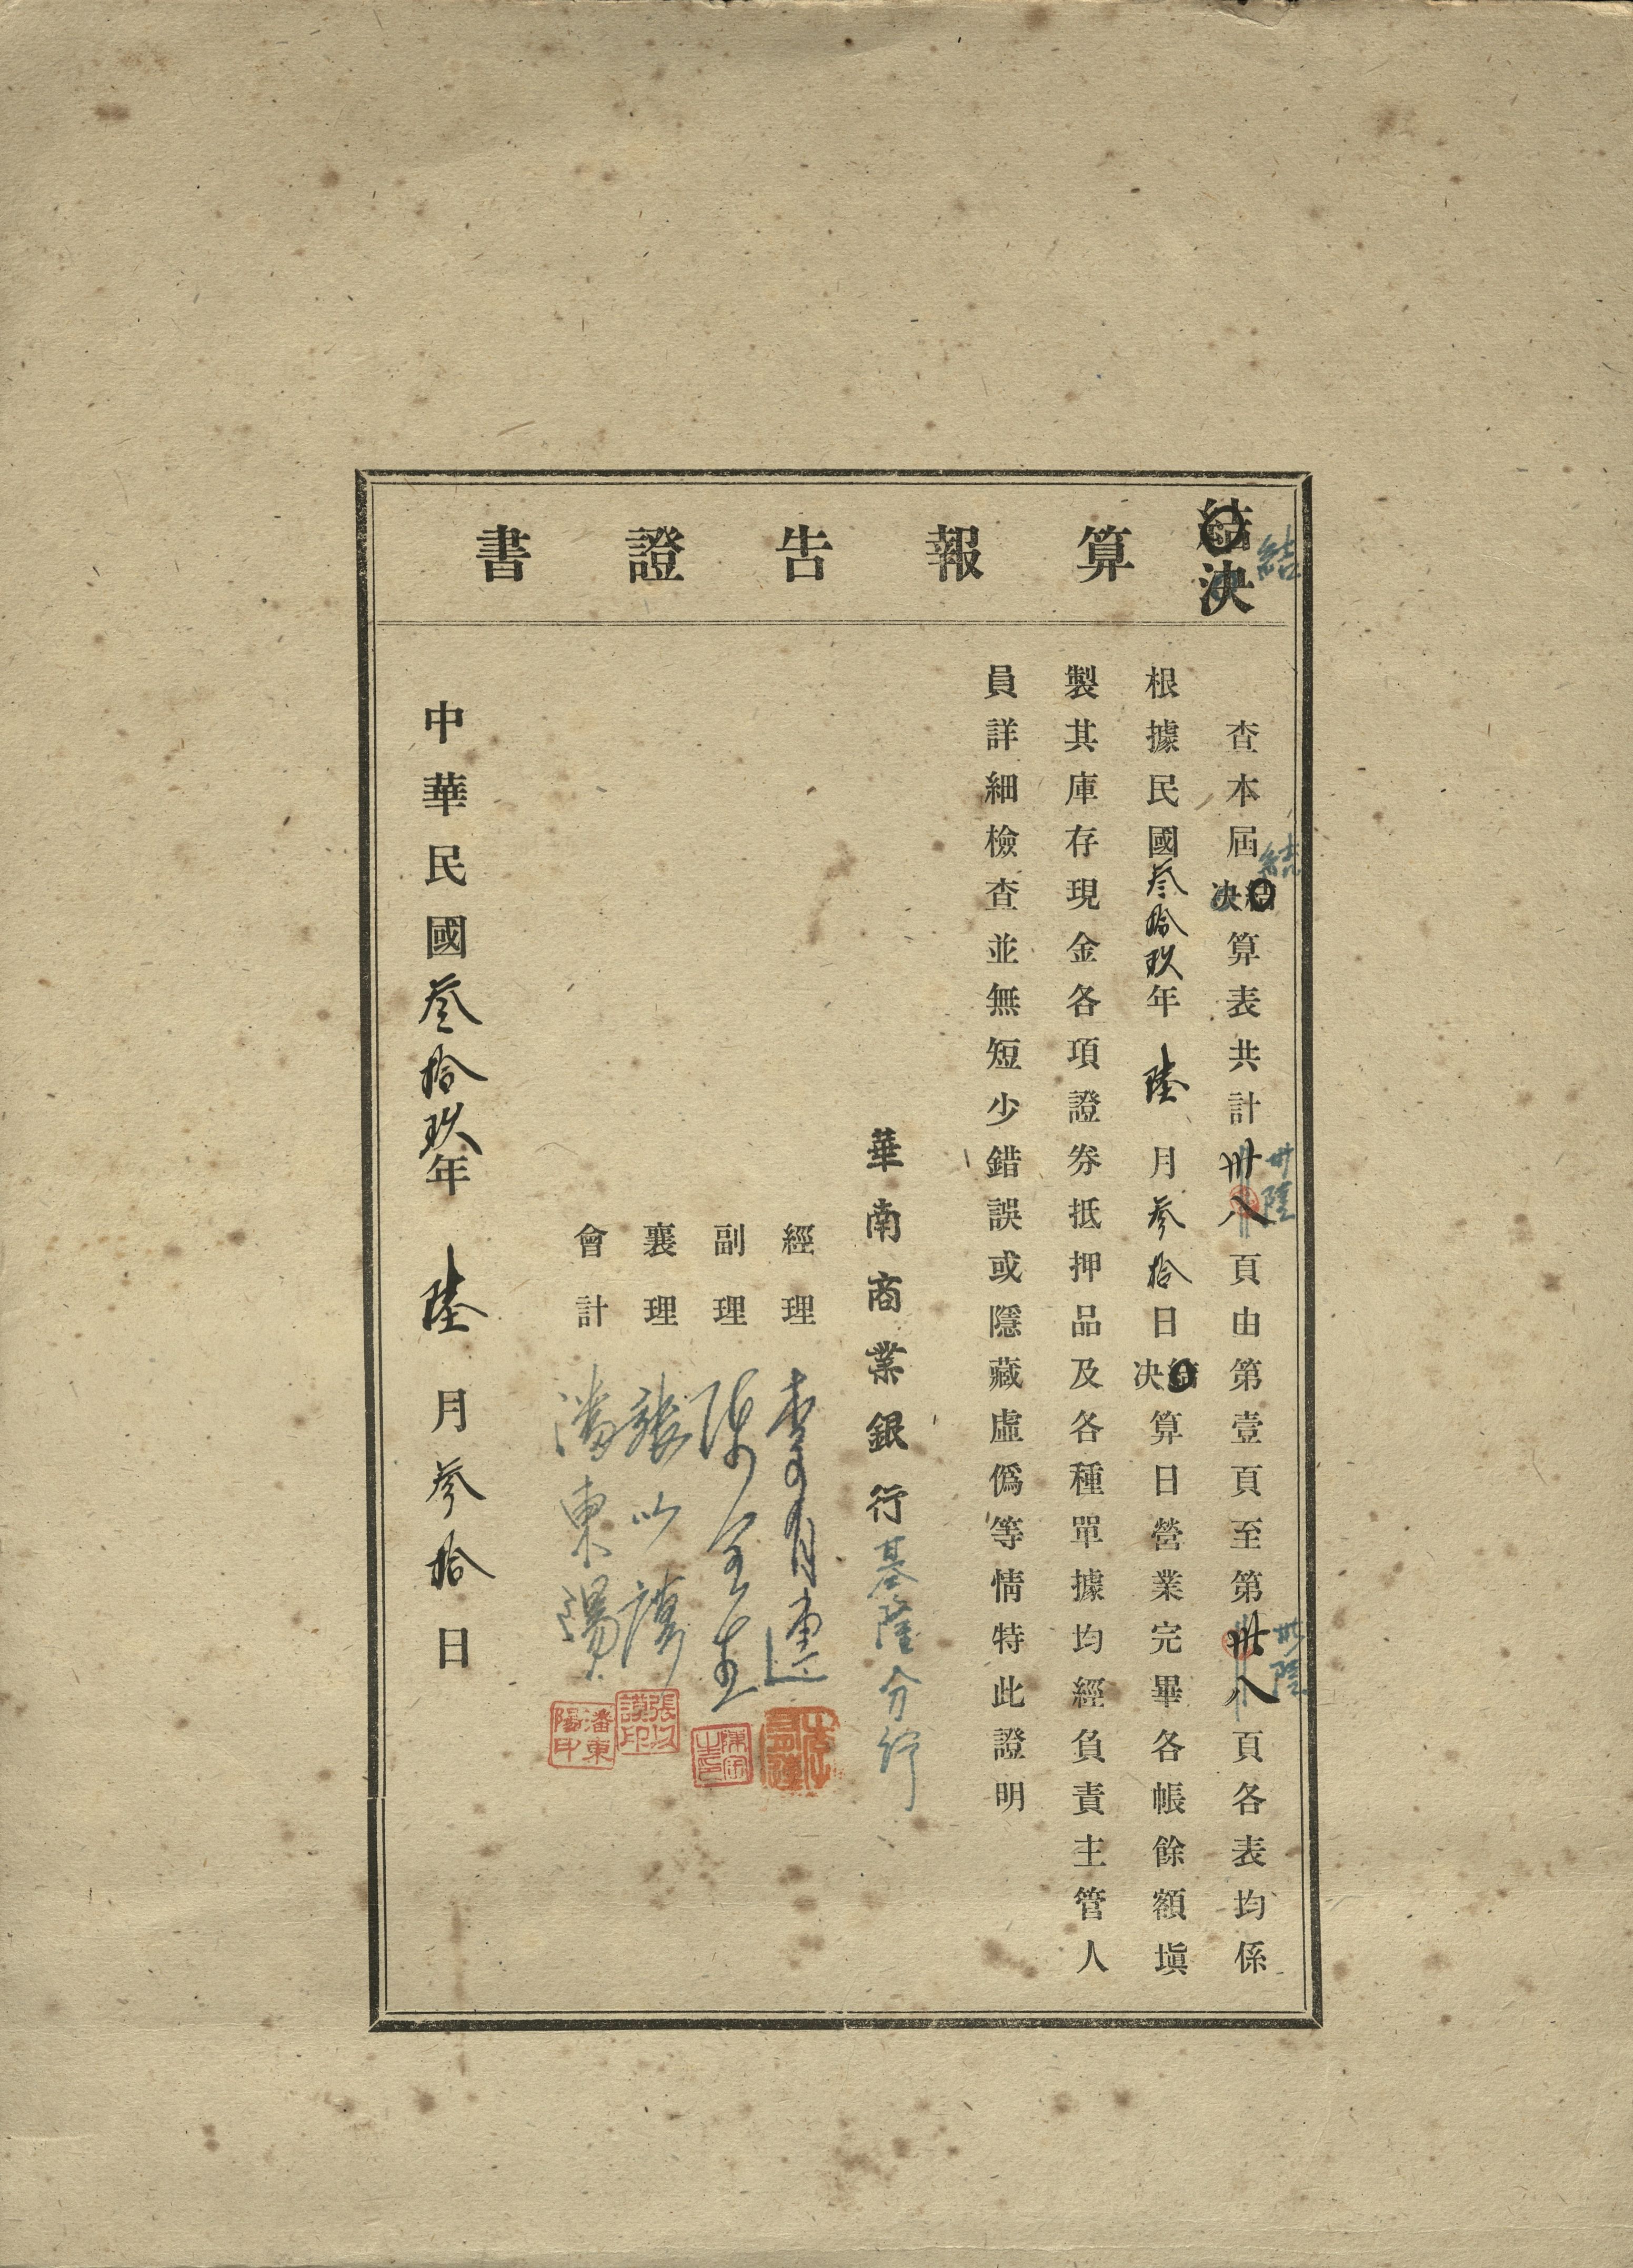 結決算報告證書
結
查本屆決結算表共計卅八頁由第壹頁至第卅八頁各表均係
結
卅陸
卅陸
根據民國叁拾玖年陸月叁拾日決結算日營業完畢各帳餘額塡
製其庫存現金各項證券抵押品及各種單據均經負責主管人
員詳細檢查並無短少錯誤或隱藏虛僞等情特此證明
華南商業銀行基隆分行
經理 李有連
副理 陳
襄理 張以謨
會計 潘東陽
張以謨印
潘東陽印
中華民國叁拾玖年陸月叁拾日